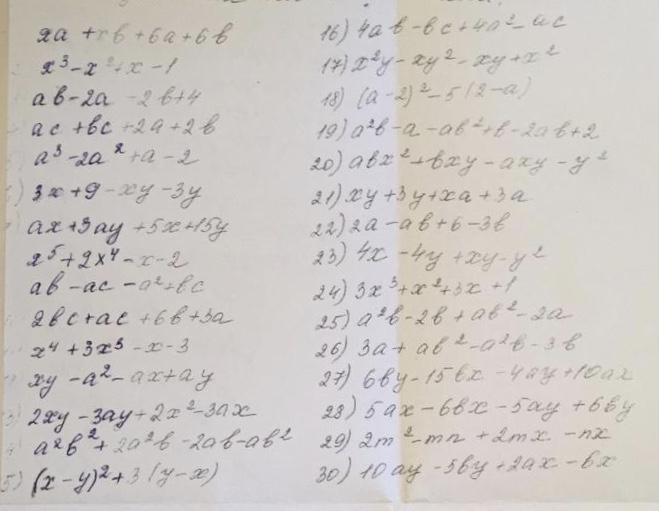 xa + xb + 6a + 6b
x³ - x² + x - 1
ab - 2a - 2b + 4
ac + bc + 2a + 2b
a³ - 2a² + a - 2
3x + 9 - xy - 3y
ax + 3ay + 5x + 15y
x⁵ + 2x⁴ - x - 2
ab - ac - a² + bc
2bc + ac + 6b + 3a
x⁴ + 3x³ - x - 3
xy - a² - ax + ay
3) 2xy - 3ay + 2x² - 3ax
a²b² + 2a²b - 2ab - ab²
5) (x - y)² + 3(y - x)
16) 4ab - bc + 4a² - ac
17) x²y - xy² - xy + x²
18) (a - 2)² - 5(2 - a)
19) a²b - a - ab² + b - 2ab + 2
20) abx² + bxy - axy - y²
21) xy + 3y + xa + 3a
22) 2a - ab + 6 - 3b
23) 4x - 4y + xy - y²
24) 3x³ + x² + 3x + 1
25) a²b - 2b + ab² - 2a
26) 3a + ab² - a²b - 3b
27) 6by - 15bx - 4ay + 10ax
28) 5ax - 6bx - 5ay + 6by
29) 2m² - mn + 2mx - nx
30) 10ay - 5by + 2ax - bx